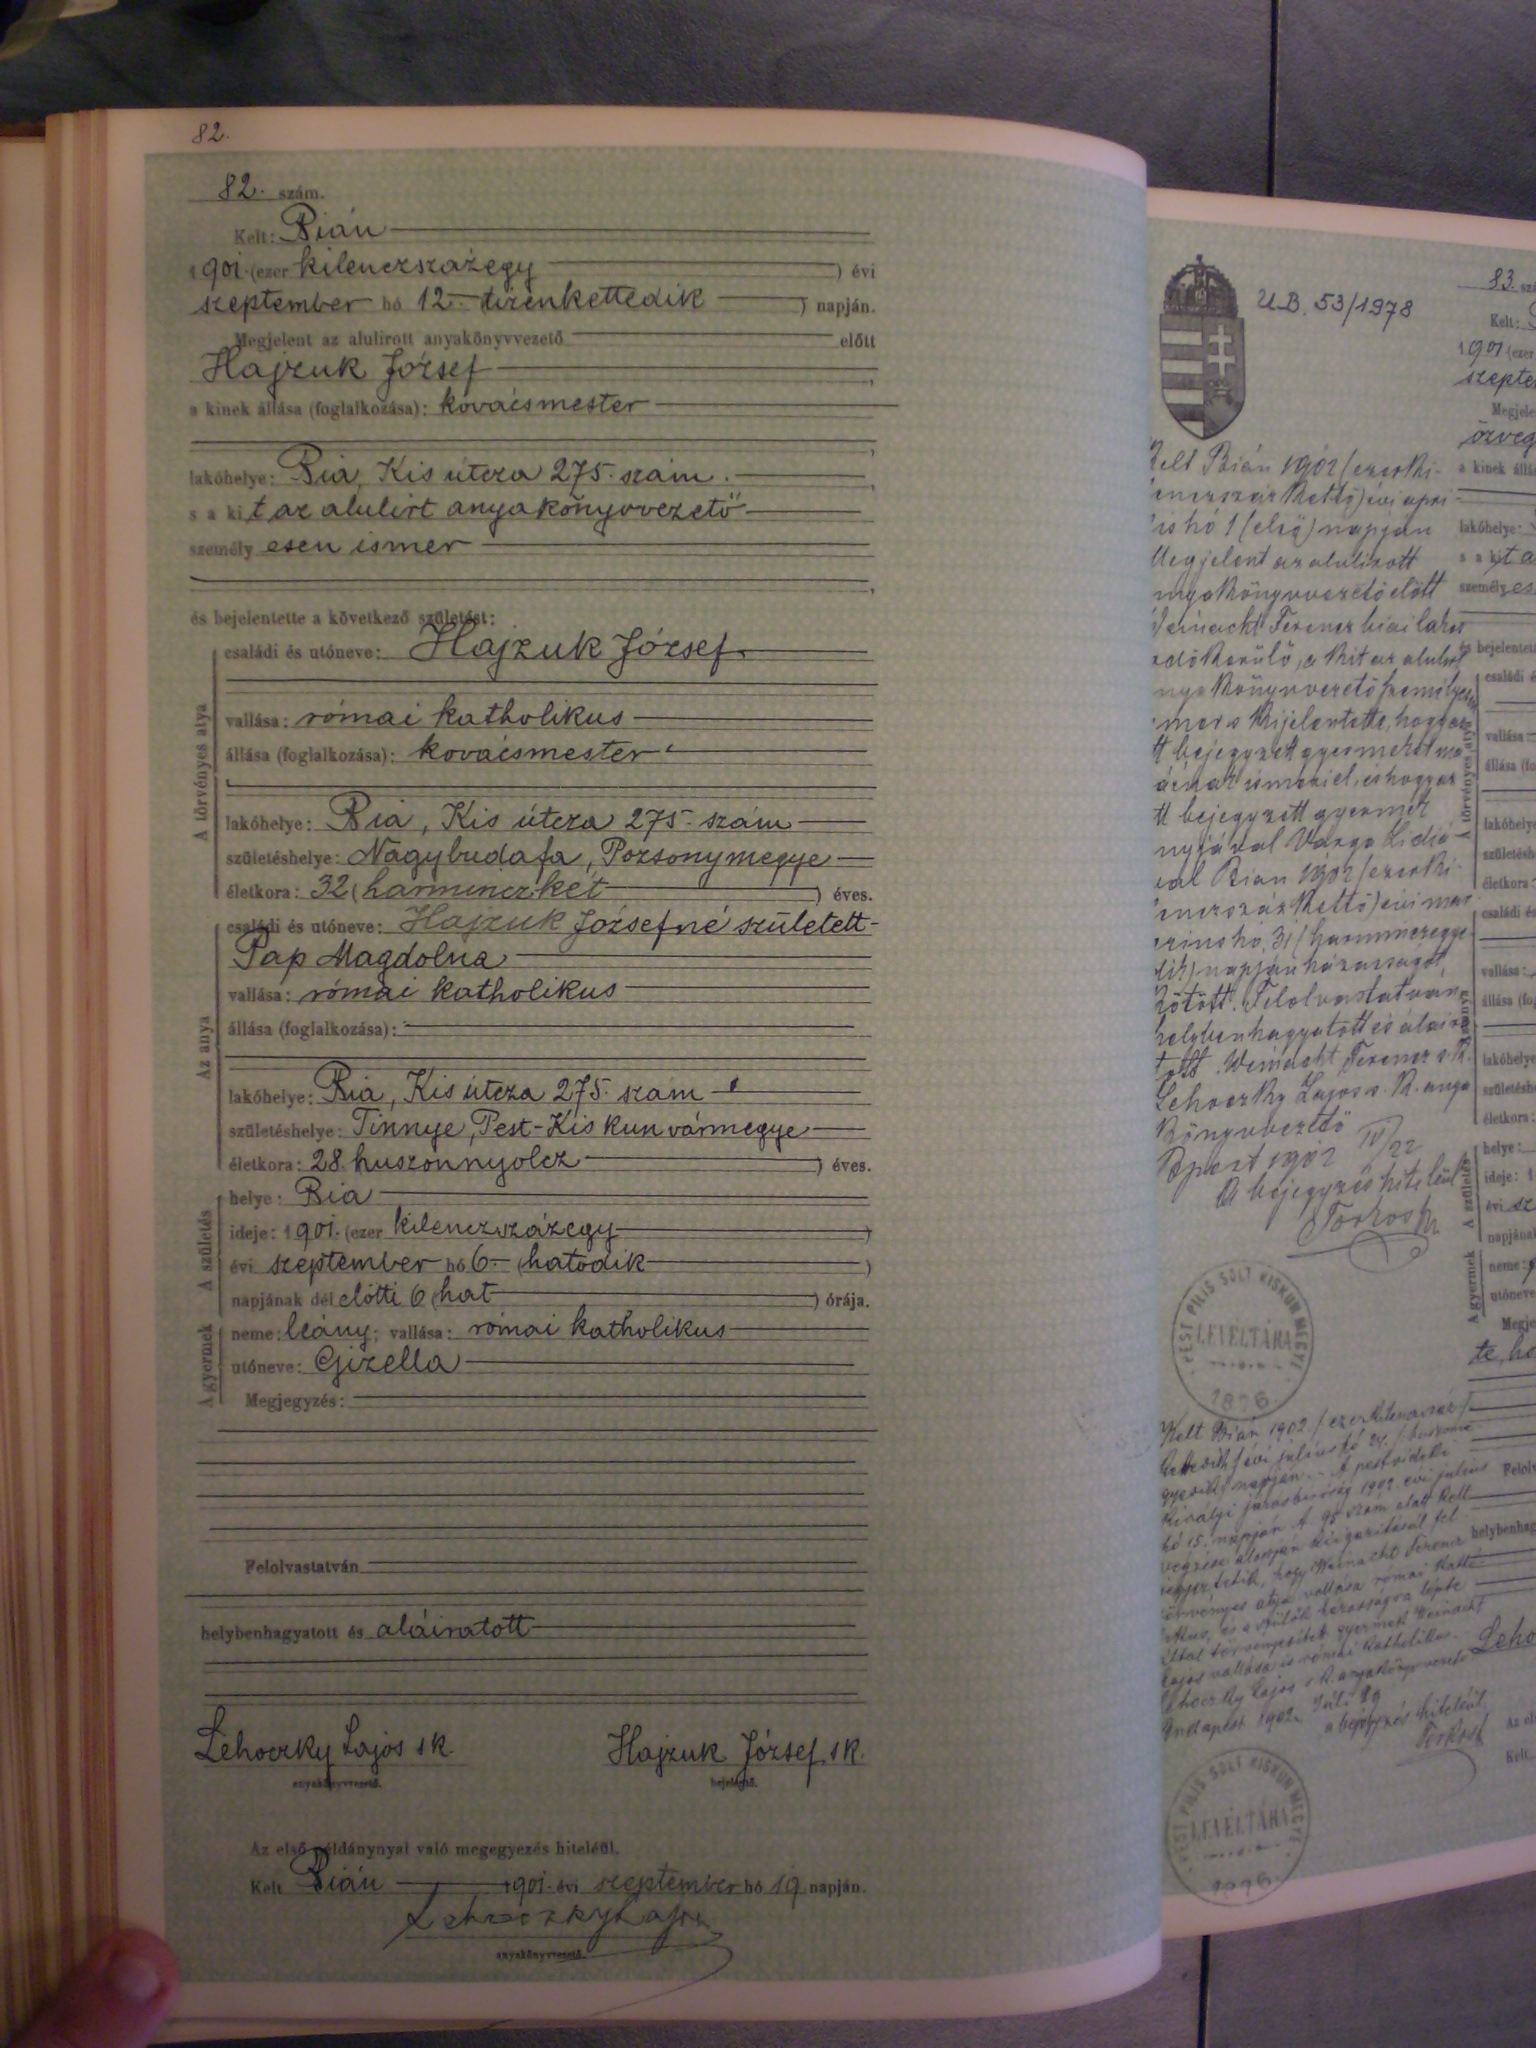 82.
82. szám.
Kelt: Bián
1901. (ezer kilenczszázegy ) évi
szeptember hó 12. tizenkettedik ) napján.
Megjelent az alulirott anyakönyvvezető előtt
Hajzuk József,
a kinek állása (foglalkozása): kovácsmester
lakóhelye: Bia, Kis útcza 275. szám.
s a kit az alulirt anyakönyvvezető
személyesen ismer
és bejelentette a következő születést:
A törvényes atya
családi és utóneve: Hajzuk József
vallása: római katholikus
állása (foglalkozása): kovácsmester
lakóhelye: Bia, Kis útcza 275. szám
születéshelye: Nagybudafa, Pozsonymegye
életkora: 32 (harminczkét ) éves.
Az anya
családi és utóneve: Hajzuk Józsefné született
Pap Magdolna
vallása: római katholikus
állása (foglalkozása):
lakóhelye: Bia, Kis útcza 275. szám
születéshelye: Tinnye, Pest-Kis kun vármegye
életkora: 28. huszonnyolcz ) éves.
A születés
helye: Bia
ideje: 1901. (ezer kilenczszázegy )
évi szeptember hó 6. (hatodik )
napjának dél előtti 6 (hat ) órája.
A gyermek
neme: leány; vallása: római katholikus
utóneve: Gizella
Megjegyzés:
Felolvastatván
helybenhagyatott és aláiratott
Lehoczky Lajos sk. Hajzuk József sk.
anyakönyvvezető. bejelentő.
Az első példánynyal való megegyezés hiteléül.
Kelt Bián 1901. évi szeptember hó 19 napján.
Lehoczky Lajos
anyakönyvvezető.
U.B. 53/1978
Kelt Bián 1902 (ezerki-
lenczszázkettő) évi ápri-
lis hó 1 (első) napján
Megjelent az alulirott
anyakönyvvezető előtt
Weinacht Ferencz biai lakos
a kit az alulirt
anyakönyvvezető személyesen
ismer s kijelentette, hogy az
itt bejegyzett gyermeket ma-
gáénak ismeri el, és hogy az
itt bejegyzett gyermek
anyjával Varga Lidiá-
val Bián 1902 (ezerki-
lenczszázkettő) évi már-
czius hó 31 (harminczegye-
dik) napján házasságot
kötött. Felolvastatván
helybenhagyatott és aláira-
tott. Weinacht Ferencz s.k.
Lehoczky Lajos s.k. anya
könyvvezető
Bpest 1902 IV/22
A bejegyzés hiteléül
PEST PILIS SOLT KISKUN MEGYE
LEVÉLTÁRA
1876
Kelt Bián 1902 (ezerkilenczszáz
kettedik) évi július hó 24. (huszonne-
gyedik) napján. - A pestvidéki
királyi járásbíróság 1902. évi július
hó 15. napján A. 95 szám alatt kelt
végzése alapján kiigazításúl fel
jegyeztetik, hogy Weinacht Ferencz
törvényes atya vallása római kath
likus, és a szülők házasságra lépte
által törvényesített gyermek Weinacht
Lajos vallása is római katholikus.
Lehoczky Lajos s.k. anyakönyvvezető
Budapest 1902. Júli 29
a bejegyzés hiteléül.
PEST PILIS SOLT KISKUN MEGYE
LEVÉLTÁRA
1876
83. szá
Kelt:
1901 (ezer
szepte
Megjele
özveg
a kinek állá
lakóhelye:
s a kit a
személyes
bejelentett
családi é
vallása:
állása (fo
lakóhelye
születésh
életkora:
családi és
vallása:
állása (fog
lakóhelye
születésh
életkora:
A születés
helye:
ideje: 1
évi sz
napjának
A gyermek
neme:
utóneve
Megje
te, ho
Felolv
helybenhag
Leho
Az el
Kelt